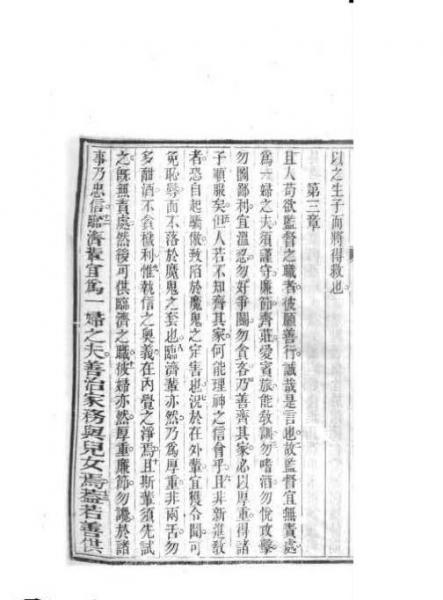 以之生子而將得救也
第三章
且人苟欲監督之職者彼願善行誠哉是言也故監督宜無責處
為一婦之夫須謹守廉節齊莊愛賓旅能教訓勿嗜酒勿悅攻擊
勿圖鄙利宜溫忍勿好爭鬭勿貪吝乃善齊其家必以厚重得諸
子順服矣但人若不知齊其家何能理神之會乎且非新進敎
者恐自起驕傲致陷於魔鬼之定害也況於在外輩宜獲令聞可
免恥辱而不落於魔鬼之套也臨濟輩亦然乃為厚重非兩舌勿
多酣酒不貪穢利惟執信之奧義在內覺之淨焉且斯輩須先試
之旣無責處然後可供臨濟之職彼婦亦然厚重廉節勿讒於諸
事乃忠信臨濟輩宜為一婦之夫善治家務與兒女焉蓋若善供